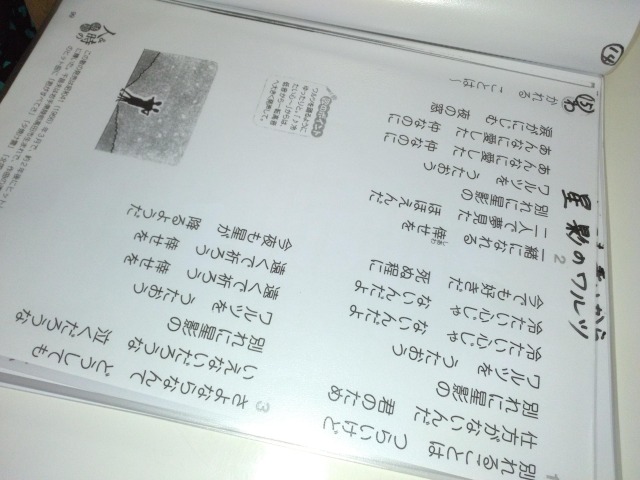 星影のワルツ
1
別れることは つらいけど
仕方がないんだ 君のため
別れに星影の
ワルツを うたおう
冷たい心じゃ ないんだよ
冷たい心じゃ ないんだよ
今でも好きだ 死ぬ程に
2
一緒になれる 倖せを
二人で夢見た ほほえんだ
別れに星影の
ワルツを うたおう
あんなに愛した 仲なのに
あんなに愛した 仲なのに
涙がにじむ 夜の窓
3
さよならなんて どうしても
いえないだろうな 泣くだろうな
別れに星影の
ワルツを うたおう
遠くで祈ろう 倖せを
遠くで祈ろう 倖せを
今夜も星が 降るようだ
かれる ことは〜
14